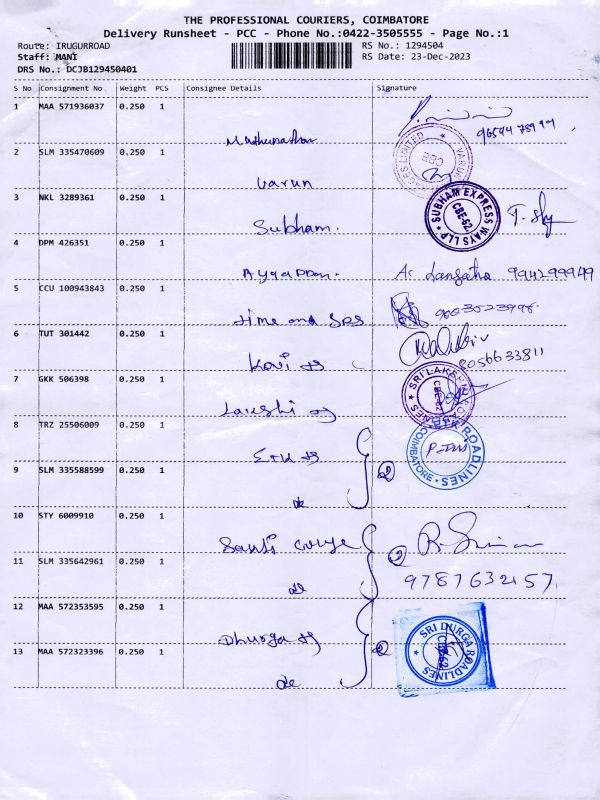 THE PROFESSIONAL COURIERS, COIMBATORE
Delivery Runsheet - PCC - Phone No.:0422-3505555 - Page No.:1
Route: IRUGURROAD RS No.: 1294504
Staff: MANI RS Date: 23-Dec-2023
DRS No.: DCJB129450401
S No Consignment No Weight PCS Consignee Details Signature
1 MAA 571936037 0.250 1
2 SLM 335470609 0.250 1
Varun
3 NKL 3289361 0.250 1
Subham. SUBHAM EXPRESS WAYS LLP CBE-62
4 DPM 426351 0.250 1
Ayyappan.
5 CCU 100943843 0.250 1
time and SPS
6 TUT 301442 0.250 1
8056633811
7 GKK 506398 0.250 1
8 TRZ 25506009 0.250 1
ROADLINES COIMBATORE
9 SLM 335588599 0.250 1
10 STY 6009910 0.250 1
11 SLM 335642961 0.250 1
9787632157
12 MAA 572353595 0.250 1
Dhurga SRI DURGA ROADLINES CBE-62
13 MAA 572323396 0.250 1